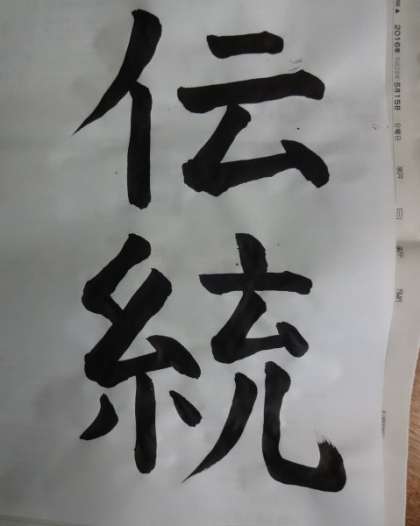 伝統
2016年 5月15日 日曜日